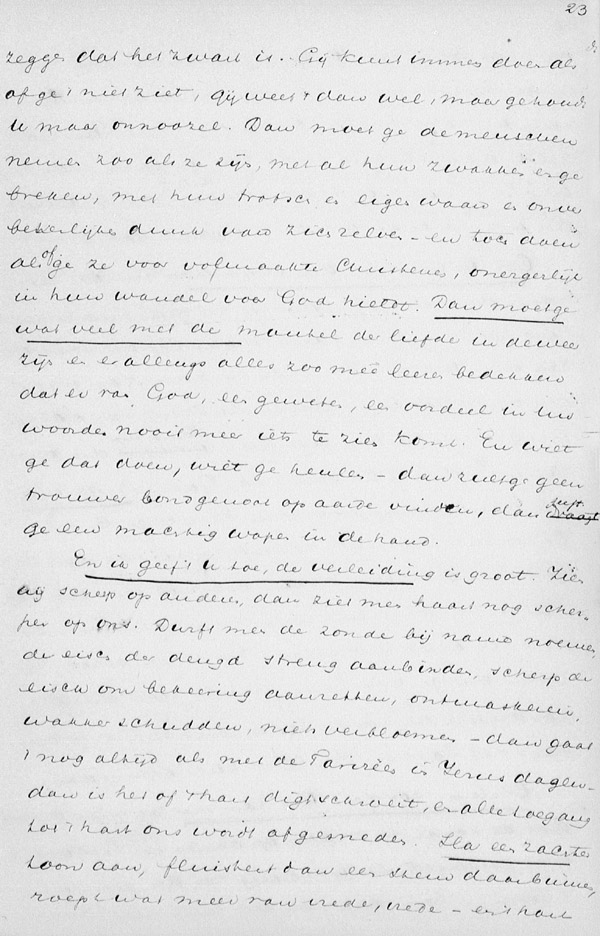 23
zegge dat het zwart is. Gij kunt immers doen als
of ge 't niet ziet, gij weet 't dan wel, maar ge houdt
U maar onnoozel. Dan moet ge de menschen
nemen zoo als ze zijn, met al hun zwakheên en ge
breken, met hun trotsch en eigenwaan en onver
beterlijken dunk van zichzelven - en toch doen
alsof ge ze voor volmaakte Christenen, onergerlijk
in hun wandel voor God hieldt. Dan moet ge
wat veel met de mantel der liefde in de weer
zijn en er allengs alles zoo meê leeren bedekken
dat er van God, een geweten, een oordeel in Uw
woorden nooit meer iets te zien komt. En wilt
ge dat doen, wilt ge heulen - dan zult ge geen
trouwer bondgenoot op aarde vinden, dan heeft
ge een machtig wapen in de hand.
En ik geef 't U toe, de verleiding is groot. Zien
wij scherp op anderen, dan ziet men haast nog scher-
per op ons. Durft men de zonde bij name noemen,
de eisch der deugd streng aanbinden, scherp den
eisch om bekeering aanzetten, ontmaskeren,
wakker schudden, niets verbloemen - dan gaat
't nog altijd als met de Farizeën in Jezus dagen -
dan is het of 't hart digtschroeit, en alle toegang
tot 't hart ons wordt afgesneden. Sla een zachter
toon aan, fluistert dan een stem daarbinnen,
roept wat meer van vrede, vrede - en 't hart